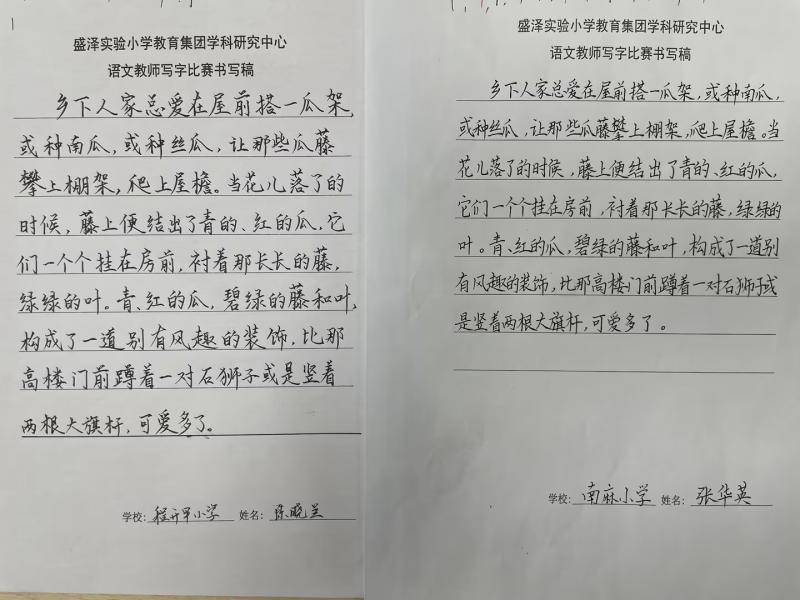 盛泽实验小学教育集团学科研究中心
语文教师写字比赛书写稿
乡下人家总爱在屋前搭一瓜架,
或种南瓜,或种丝瓜,让那些瓜藤
攀上棚架,爬上屋檐。当花儿落了的
时候,藤上便结出了青的、红的瓜,它
们一个个挂在房前,衬着那长长的藤,
绿绿的叶。青、红的瓜,碧绿的藤和叶,
构成了一道别有风趣的装饰,比那
高楼门前蹲着一对石狮子或是竖着
两根大旗杆,可爱多了。
学校:程开甲小学 姓名:陈晓兰
盛泽实验小学教育集团学科研究中心
语文教师写字比赛书写稿
乡下人家总爱在屋前搭一瓜架,或种南瓜,
或种丝瓜,让那些瓜藤攀上棚架,爬上屋檐。当
花儿落了的时候,藤上便结出了青的、红的瓜,
它们一个个挂在房前,衬着那长长的藤,绿绿的
叶。青、红的瓜,碧绿的藤和叶,构成了一道别
有风趣的装饰,比那高楼门前蹲着一对石狮子或
是竖着两根大旗杆,可爱多了。
学校:南麻小学 姓名:张华英